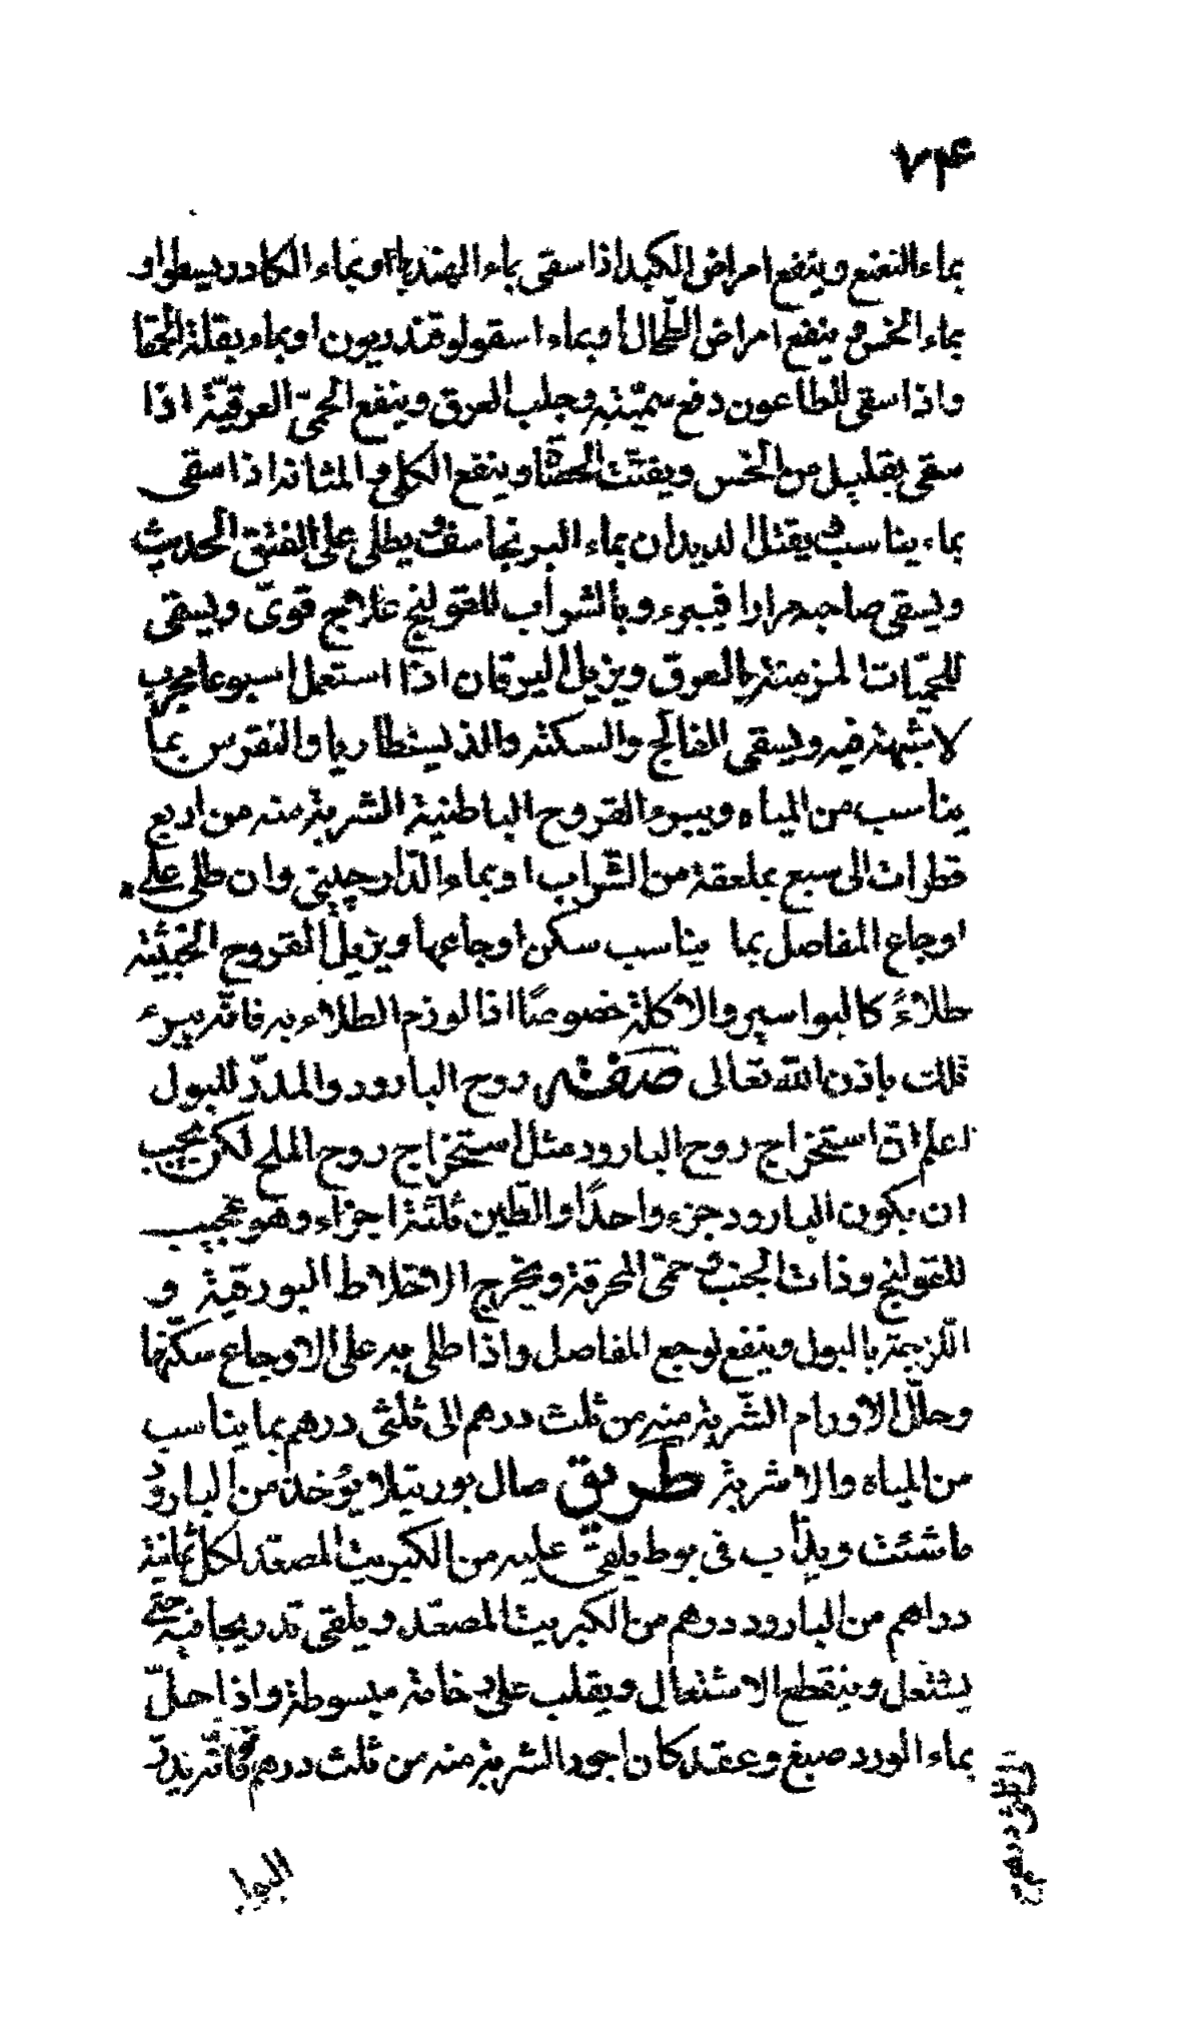 ٧۴
بماء النعنع وينفع امراض الكبد اذا سقى بماء الهندبا او بماء الكادريسطو او
بماء الخس و ينفع امراض الطّحال او بماء اسقولو قندريون او بماء بقلة الحمقا
واذا سقى للطاعون دفع سمّيّته وجلب العرق وينفع الحمىّ العرقيّة اذا
سقى بقليل من الخس ويفتّت الحصاة وينفع الكلى و المثانة اذا سقى
بماء يناسب و يقتل الديدان بماء البرنجاسف و يطلى على الفتق الحديث
ويسقى صاحبه مرارا فيبرء وبالشراب للقولنج علاج قوىّ ويسقى
للحمّيات المزمنة بالعرق ويزيل اليرقان اذا استعمل اسبوعا مجرب
لا شبهة فيه ويسقى الفالج والسكتة والذيسنطاريا والنقرس بما
يناسب من المياه ويبرء القروح الباطنية الشربة منه من اربع
قطرات الى سبع بملعقة من الشّراب او بماء الدّارچينى وان طلى على
اوجاع المفاصل بما يناسب سكن اوجاعها ويزيل القروح الخبيثة
طلاءً كالبواسير والاكلة خصوصًا اذا لوزم الطلاء به فانّه يبرء
ذلك باذن الله تعالى صفة روح البارود والمدرّ للبول
اعلم انّ استخراج روح البارود مثل استخراج روح الملح لكن يجب
ان يكون البارود جزء واحدًا والطّين ثلثة اجزاء وهو عجيب
للقولنج وذات الجنب و حمّى المحرقة ويخرج الاخلاط البورقية و
اللّزجة بالبول وينفع لوجع المفاصل واذا طلى به على الاوجاع سكّنها
وحلّل الاورام الشّربة منه من ثلث درهم الى ثلثى درهم بما يناسب
من المياه والاشربة طريق صال بورتيلا يؤخذ من البارود
ما شئت ويذاب فى بوط يلقى عليه من الكبريت المصعّد لكل ثمانية
دراهم من البارود درهم من الكبريت المصعّد ويلقى تدريجا فيه حتى
يشتعل وينقطع الاشتعال ويقلب على رخامة مبسوطة واذا حلّ
بماء الورد صبغ وعقد كان اجود الشربة منه من ثلث درهم فانّه يدرّ
الى ثلثى درهم
البول